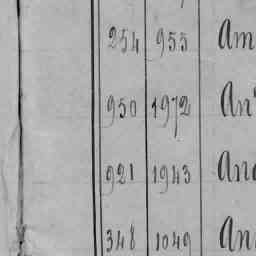 254 955 Am
950 1972 An
921 1943 And
348 1049 An